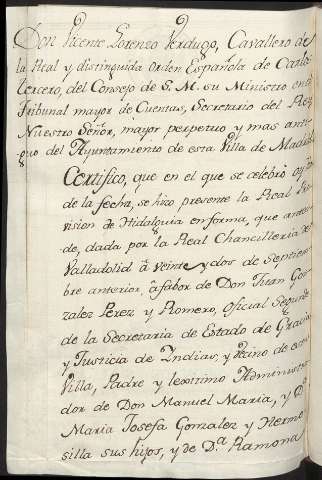 Don Vicente Lorenzo Verdugo, Cavallero de
la Real y distinguida orden Española de Carlos
tercero, del Consejo de S. M. su Ministro en el
Tribunal mayor de Cuentas, Secretario del Rey
Nuestro Señor, mayor perpetuo y mas anti-
guo del Ayuntamiento de esta Villa de Madrid
Certifico, que en el que se celebró oy dia
de la fecha, se hizo presente la Real Pro
vision de Hidalguia en forma, que antece
de, dada por la Real Chancilleria de
Valladolid â veinte y dos de Septiem
bre anterior, â fabor de Don Juan Gon
zalez Perez y Romero, Oficial Segundo
de la Secretaria de Estado de Gracia
y Justicia de Indias, y vecino de esta
Villa, Padre y lexitimo Administra
dor de Don Manuel Maria, y D.ª
Maria Josefa Gonzalez y Hermo
silla sus hijos, y de D.ª Ramona